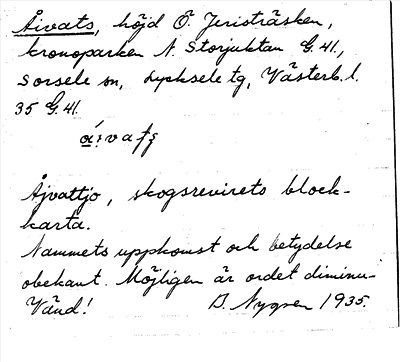 Åivats, höjd Ö. Jeristräsken,
kronoparken N. Storjuktan G. 41,
Sorsele sn, Lycksele tg, Västerb. l.
35 G. 41.
Åjvattjo, skogsrevirets block-
karta.
Namnets uppkomst och betydelse
obekant. Möjligen är ordet diminu-
Vänd! D. Nygren 1935.